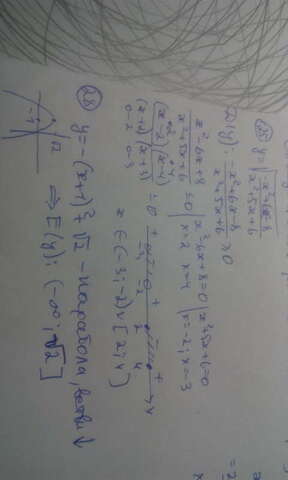 y = √(-x²+6x-8 / x²+5x+6)
D(y): -x²+6x-8 / x²+5x+6 ≥ 0
x²-6x+8 / x²+5x+6 ≤ 0 | x²-6x+8=0 | x²+5x+6=0
x=2 x=4 | x=-2; x=-3
(x-2)(x-4) / (x+2)(x+3) ≤ 0
-3 -2 2 4
x ∈ (-3; -2) ∪ [2; 4]
28 y = -(x+1)² + √2 - парабола, ветви ↓
⇒ E(y): (-∞; √2]
-1 √2